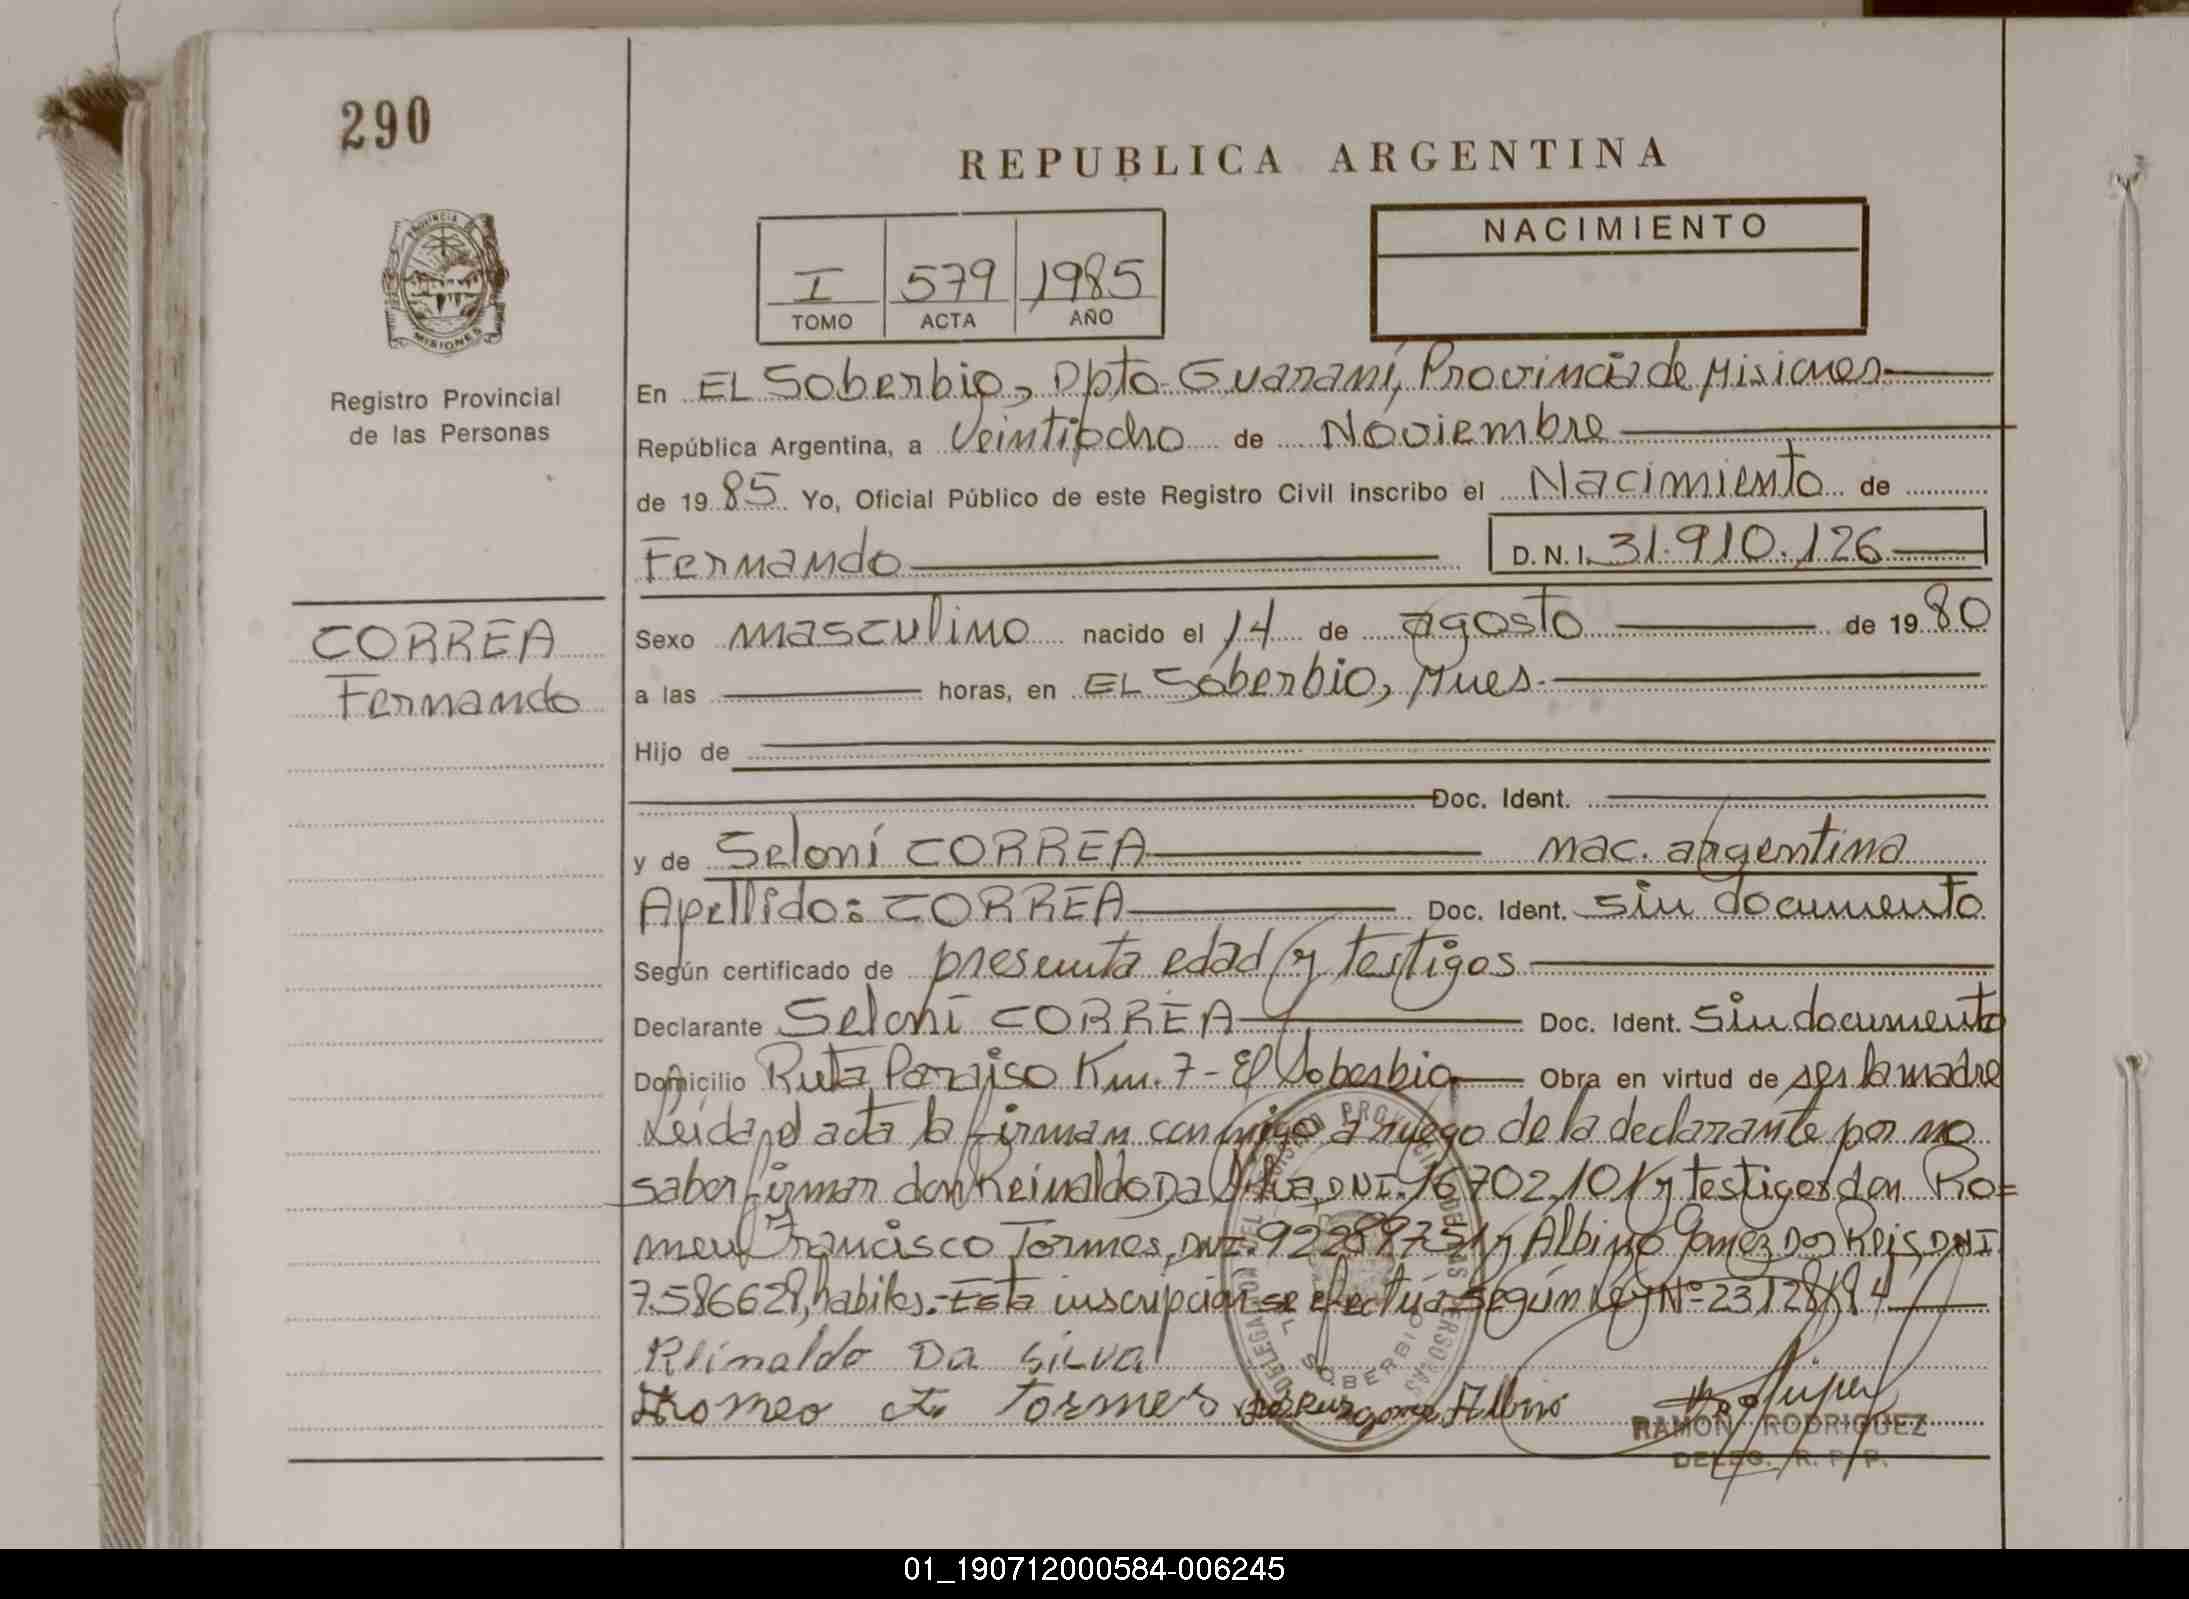 290
REPUBLICA ARGENTINA
PROVINCIA DE
MISIONES
Registro Provincial
de las Personas
I 579 1985
TOMO ACTA AÑO
NACIMIENTO
En EL Soberbio, Dpto Guaraní, Provincia de Misiones
República Argentina, a Veintiocho de Noviembre
de 1985 Yo, Oficial Público de este Registro Civil inscribo el Nacimiento de
Fernando D.N.I. 31.910.126
CORREA
Fernando
Sexo masculino nacido el 14 de agosto de 1980
a las horas, en EL Soberbio, Mnes.
Hijo de
Doc. Ident.
y de Seloní CORREA nac. argentina
Apellido: CORREA Doc. Ident. sin documento
Según certificado de presunta edad y testigos
Declarante Seloní CORREA Doc. Ident. Sin documento
Domicilio Ruta Paraiso Km. 7 - El Soberbio Obra en virtud de ser la madre
Leida el acta la firman conmigo a ruego de la declarante por no
saber firmar don Reinaldo Da Silva, DNI. 16702101 y testigos don Ro=
meu Francisco Tormes, DNI. 92289751 y Albino Gomez Dos Reis, DNI.
7.586628, habiles.- Esta inscripción se efectúa según Ley Nº 23128/84
Reinaldo Da Silva
Romeo F. Tormes Albino
RAMON RODRIGUEZ
DELEG. R. P. P.
SOBERBIO
01_190712000584-006245